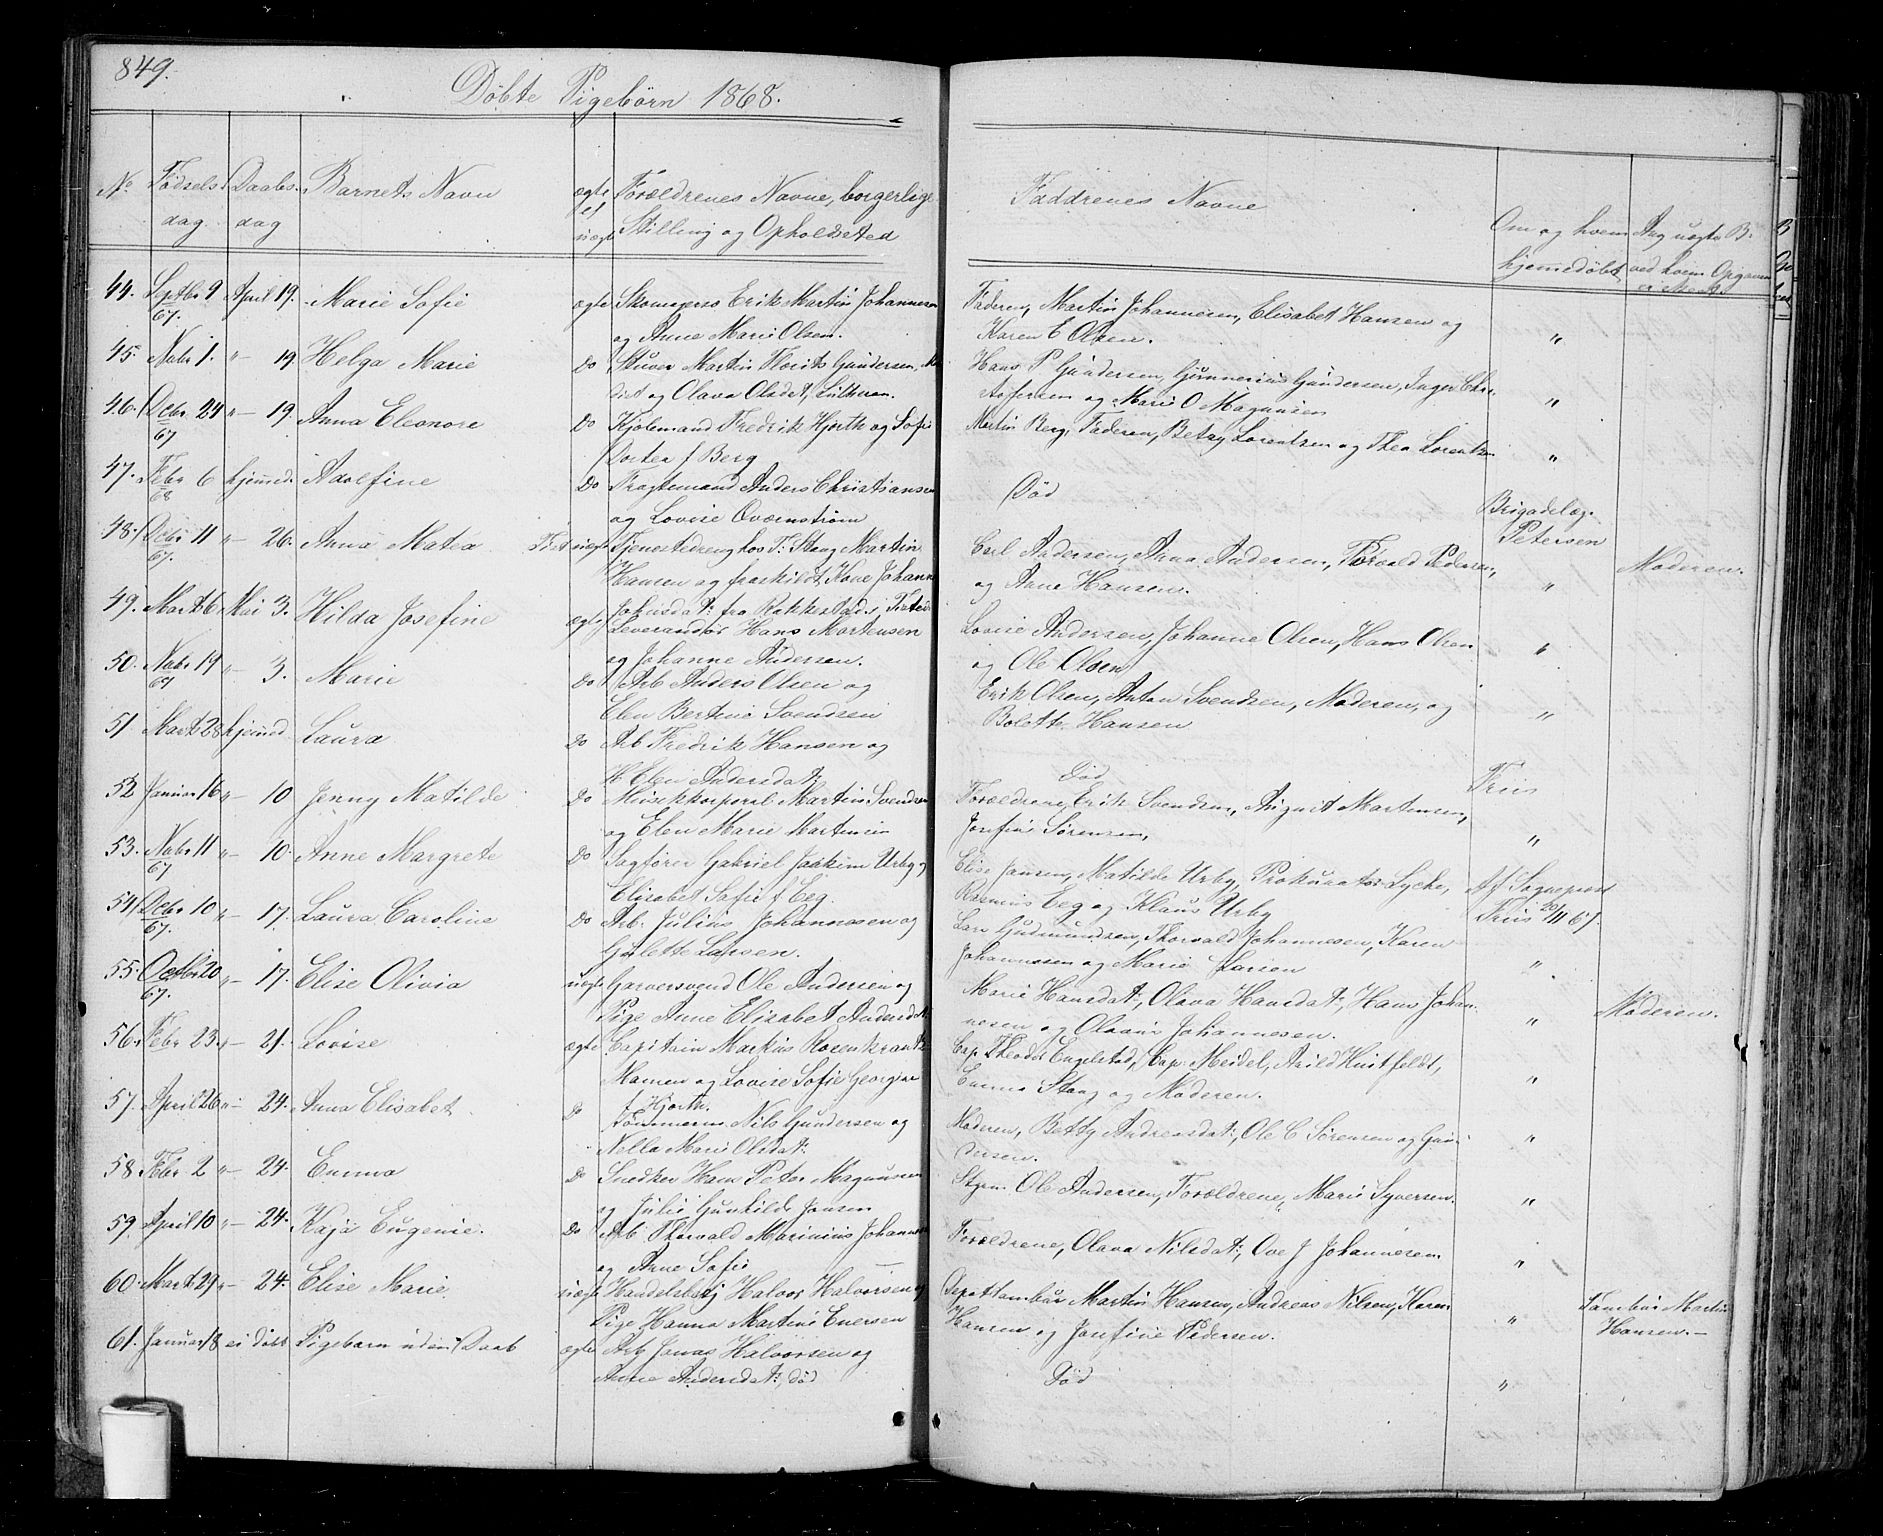 849.
Döbte Pigebörn 1868.
No Födsels dag Daabs dag Barnets Navn ægte el uægte Forældrenes Navne, borgerlige Stilling og Opholdsted Faddrenes Navne Om og hvem hjemmedöbt Ang uægte B. ved hvem Opgaven
44. Septbr 9 67. April 19. Marie Sofie ægte Skomagersv Erik Martin Johannesen Faderen, Martin Johannesen, Elisabet Hansen og
og Anne Marie Olsen. Karen E Olsen. "
45. Nvbr 1. " 19 Helga Marie Do Stuver Martin Gundersen, Hans P Gundersen, Gunnerius Gundersen, Inger Chri-
og Olava Olsdat, Luthran. stofersen og Marie O Magnusen "
46. Decbr 24 67 " 19. Anna Eleonore Do Kjölemand Fredrik Hjorth og Sofie Martin Berg, Faderen, Betzy Lorentzen og Thea Lorentzen
Dortea f Berg "
47. Febr 6 68 hjemmed. Adolfine Do Fragtemand Anders Christiansen Död Brigadelæg.
og Lovise Qværnström Petersen
48. Decbr 11 67. " 26. Anna Matea uægte Tjenestedreng hos F: Stang Martin Carl Andersen, Anna Andersen, Torvald Pedersen, Moderen.
Hansen og fraskildt Kone Johanne og Anne Hansen. "
49. Marts 6 Mai 3. Hilda Josefine ægte Johnsdat: fra Rakkestad
Leverandör Hans Mortensen Lovise Andersen, Johanne Olsen, Hans Olsen
og Johanne Andersen. og Ole Olsen "
50. Nvbr 19 67 " 3. Marie Do Arb Anders Olsen og Erik Olsen, Anton Svendsen, Moderen, og
Elen Bertine Svendsen Bolette Hansen "
51. Marts 28 hjemmed Laura Do Arb Fredrik Hansen og
H Elen Andersdat: Död Friis
52 Januar 16 " 10 Jenny Matilde Do Musikkorporal Martin Svendsen Forældrene, Erik Svendsen, August Martensen,
og Elen Marie Martensen Josefine Sörensen, "
53. Nvbr 11 67 " 10. Anne Margrete Do Sagförer Gabriel Joakim Urby og Elise Jansen, Matilde Urby, Prokurator Lycke, Af Sogneprest
Elisabet Sofie f Eeg. Rasmus Eeg og Klaus Urby Friis 20/11 67.
54 Decbr 10 67. " 17. Laura Caroline Do Arb. Julius Johannesen og Lars Gudmundsen, Thorvald Johannesen, Karen
Gulette Larsen. Johannesen og Marie Larsen "
55. Octbr 20 67. " 17. Elise Olivia uægte Garversvend Ole Andersen og Marie Hansdat:, Olava Hansdat:, Hans Johan- Moderen.
Pige Anne Elisabet Andersdat nesen og Olaus Johannesen. "
56. Febr 23. " 21. Lovise ægte Capitain Markus Rosenkrantz Cap. Theodor Engelstad, Cap. Meidel, Arild Huitfeldt,
Mamen og Lovise Sofie Georgine Emma Stang og Moderen. "
f Hjorth.
57. April 26 " 24. Anna Elisabet Do Tömmerm Nils Gundersen og Moderen, Betty Andreasdat:, Ole C Sörensen og Gun-
Nella Marie Olsdat: dersen. "
58 Febr 2 " 24. Emma Do Snedker Hans Peter Magnusen Styrm Ole Andersen, Forældrene, Marie Syversen.
og Julie Gunhilde Jansen "
59. April 10 " 24. Kaja Eugenie. Do Arb Thorvald Marinius Johannesen Forældrene, Olava Nilsdat:, Ove J Johannesen
og Anne Sofie — "
60. Marts 29 " 24. Elise Marie uægte Handelsbetj Halvor Halvorsen og Depottambur Martin Hansen, Andreas Nilsen, Karen Tambur Martin
Pige Hanna Martine Enersen Hansen og Josefine Pedersen. " Hansen.—
61. Januar 18 ei döbt Pigebarn uden Daab ægte Arb Jonas Halvorsen og
Anne Andersdat:, död Död "